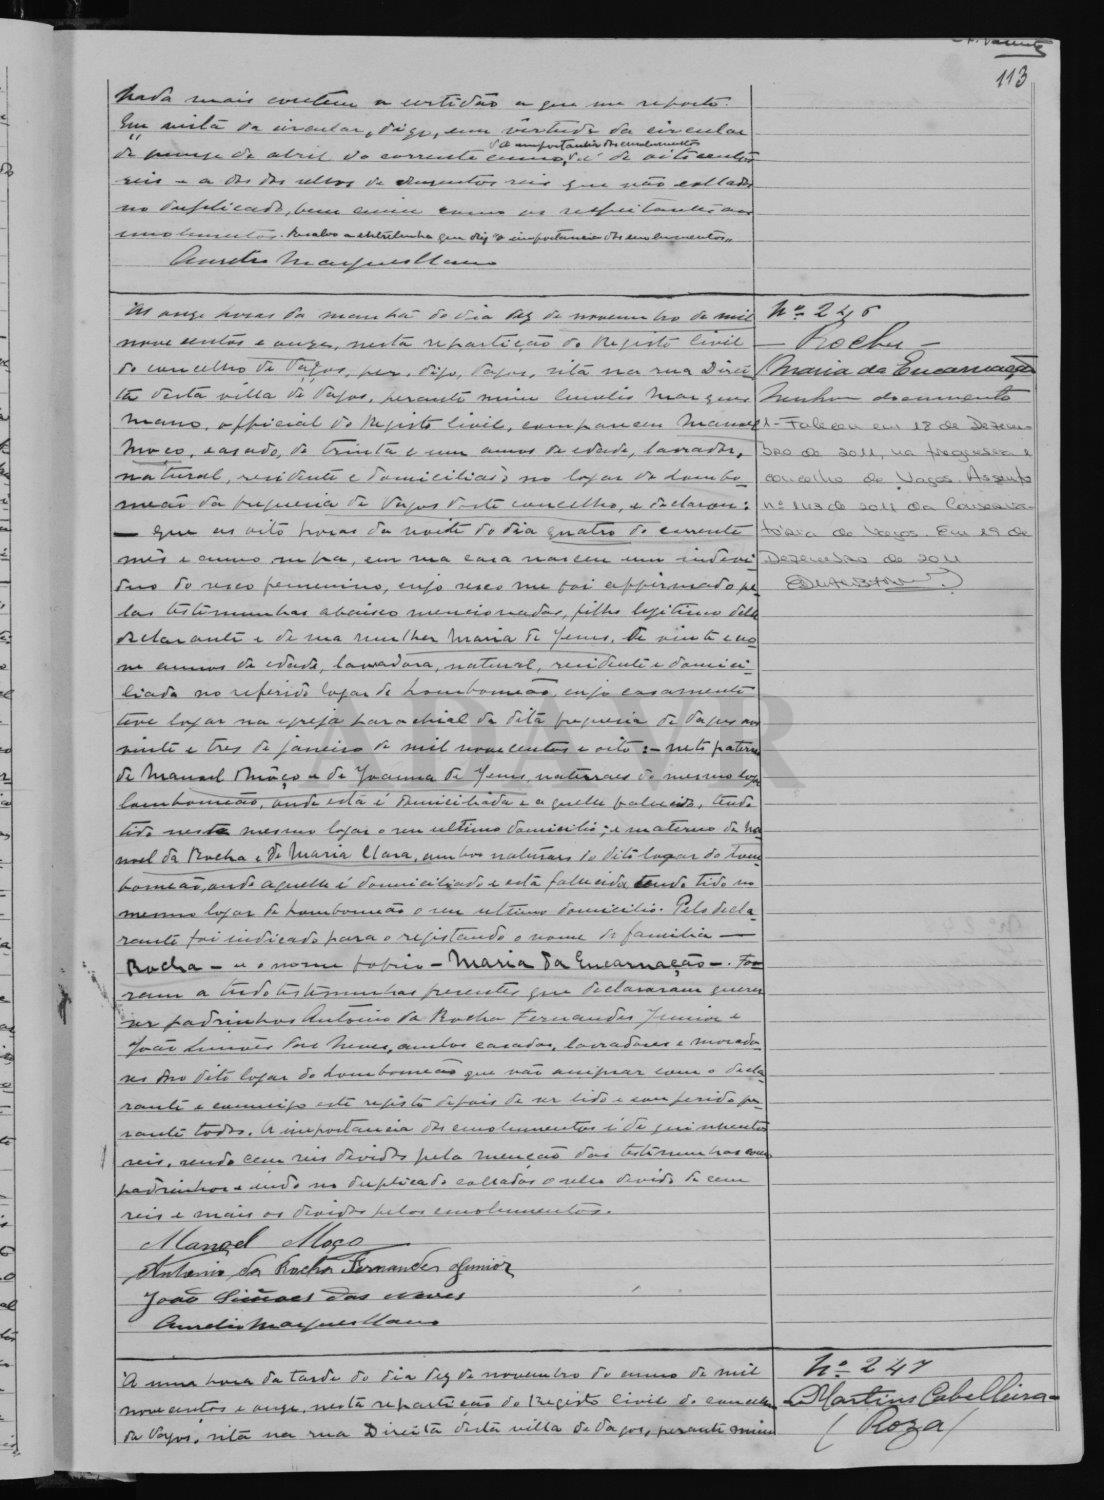 113
Nada mais contem a certidão a que me reporto.
Em vista da circular, digo, em virtude da circular
da importancia dos emolumentos
de quinze de abril do corrente anno, é de oitocentos
reis e a dos sellos de duzentos reis que vão collados
no duplicado, bem como os respeitantes aos
emolumentos. Resalvo a entrelinha que diz "a importancia dos emolumentos".
Aurelio Marques Mano
Ás onze horas da manhã do dia dez de novembro de mil
nove centos e onze, nesta repartição do Registo Civil
do concelho de Vagos, per, digo, Vagos, sita na rua Direi-
ta desta villa de Vagos, perante mim Aurelio Marques
Mano, official do Registo Civil, compareceu Manoel
Moço, casado, de trinta e um annos de edade, lavrador,
natural, residente e domiciliado no logar de Lombo-
meão da freguesia de Vagos deste concelho, e declarou:
— que ás oito horas da noite do dia quatro do corrente
mês e anno, em sua casa nasceu um indevi-
duo do sexo femenino, cujo sexo me foi affirmado pe-
las testimunhas abaixo mencionadas, filho legitimo delle
declarante e de sua mulher Maria de Jesus, de vinte e no-
ve annos de edade, lavradora, natural, residente e domici-
liada no referido logar de Lombomeão, cujo casamento
teve logar na egreja parochial da dita freguesia de Vagos aos
vinte e tres de janeiro de mil nove centos e oito: — neto paterno
de Manoel Môço e de Joanna de Jesus, naturaes do mesmo logar
Lombomeão, onde esta é domiciliada e aquelle falecido, tendo
tido neste mesmo logar o seu ultimo domicilio; e materno de Ma-
noel da Rocha e de Maria Clara, ambos naturaes do dito logar do Lom-
bomeão, onde aquelle é domiciliado e esta falecida tendo tido no
mesmo logar de Lombomeão o seu ultimo domicilio. Pelo decla-
rante foi indicado para o registando o nome de familia —
Rocha — e o nome proprio — Maria da Encarnação —. Fo-
ram a tudo testimunhas presentes que declararam querer
ser padrinhos Antonio da Rocha Fernandes Junior e
João Simões das Neves, ambos casados, lavradores e morado-
res no dito logar do Lombomeão que vão assignar com o decla-
rante e commigo este registo depois de ser lido e conferido pe-
rante todos. A importancia dos emolumentos é de quinhentos
reis, sendo cem reis devidos pela menção das testimunhas como
padrinhos e indo no duplicado collados o sello devido de cem
reis e mais os devidos pelos emolumentos.
Manoel Moço
Antonio da Rocha Fernandes Junior
João Simões das Neves
Aurelio Marques Mano
Nº 246
— Rocha —
(Maria da Encarnação)
Nenhum documento
1 - Faleceu em 18 de Dezem-
bro de 2011, na freguesia e
concelho de Vagos. Assento
nº 143 de 2011 da Conserva-
tória de Vagos. Em 19 de
Dezembro de 2011
Á uma hora da tarde do dia dez de novembro do anno de mil
nove centos e onze, nesta repartição do Registo Civil do concelho
de Vagos, sita na rua Direita desta villa de Vagos, perante mim
Nº 247
— Martins Cabelleira —
(Roza)
ADAVR